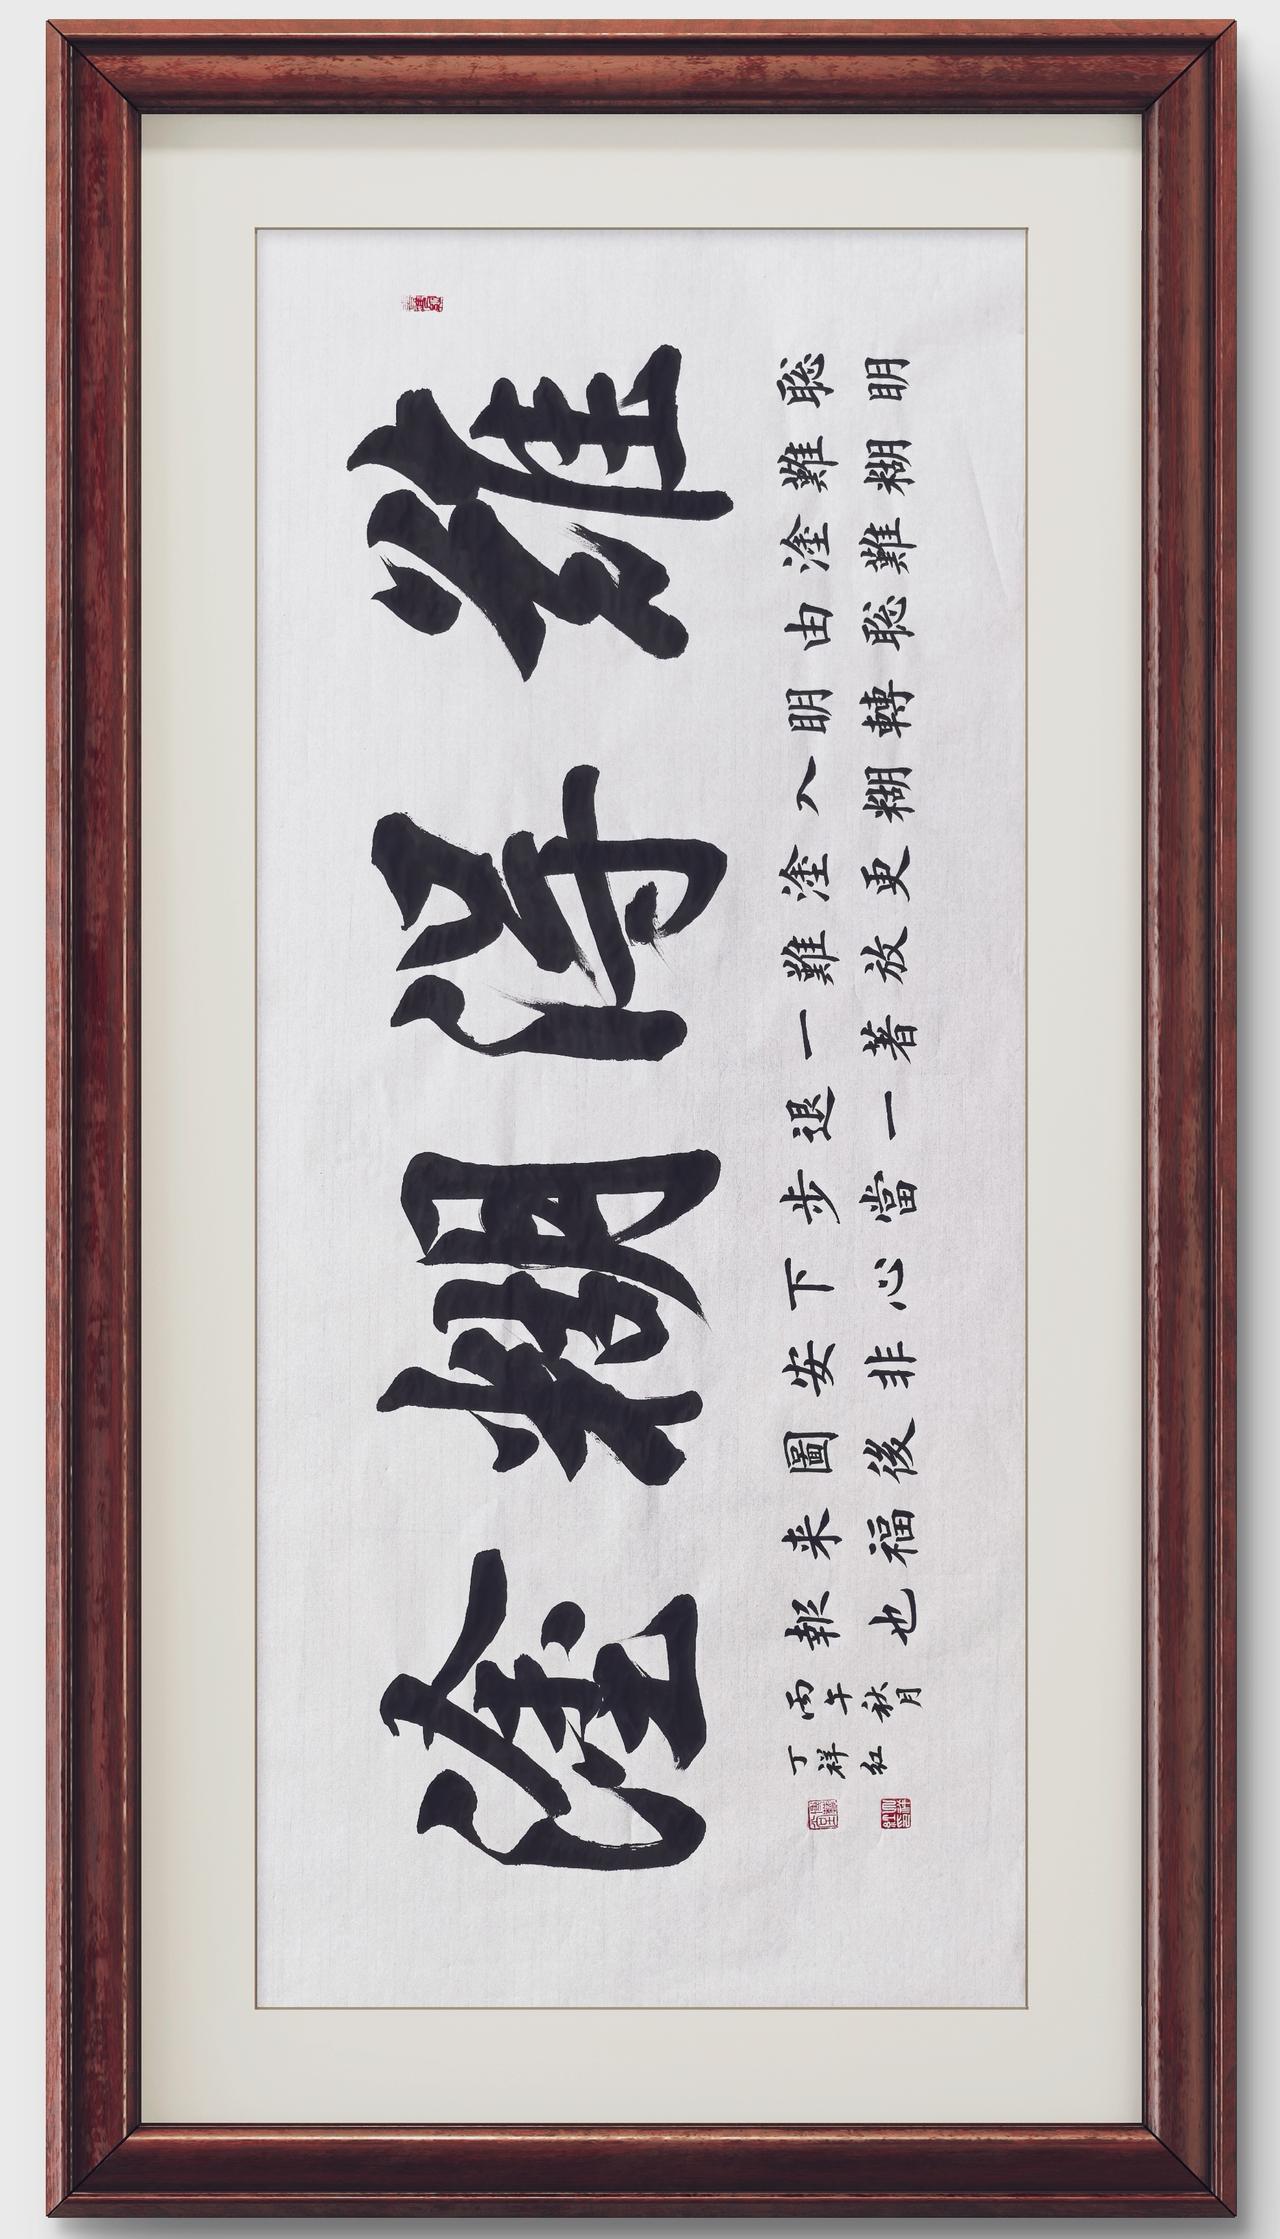 難得糊塗
聪明
難糊
塗難
由聪
明轉
入糊
塗更
難放
一著
退一
步當
下心
安非
圖後
来福
報也
丙午秋月
丁祥红